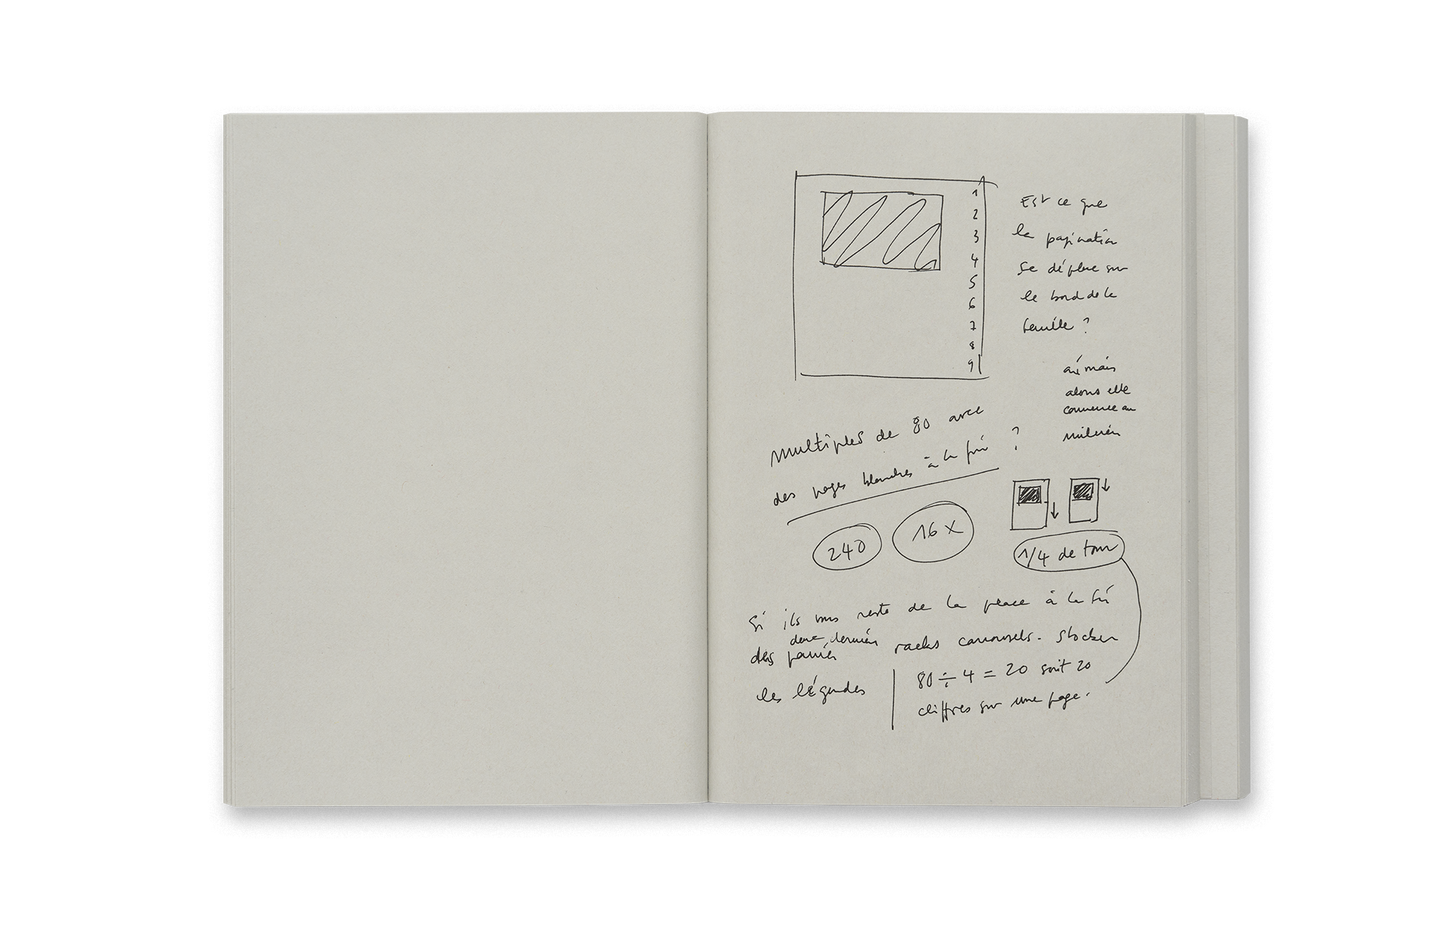 1
2
3
4
5
6
7
8
9
Est ce que
la pagination
se déplace sur
le bord de la
feuille ?
oui mais
alors elle
commence au
milieu
multiples de 80 avec
des pages blanches à la fin ?
240
16 x
1/4 de tour
Si ils reste de la place à la fin
deux dernier
des racks carrousels. Stocker
les légendes
80 ÷ 4 = 20 soit 20
chiffres sur une page.